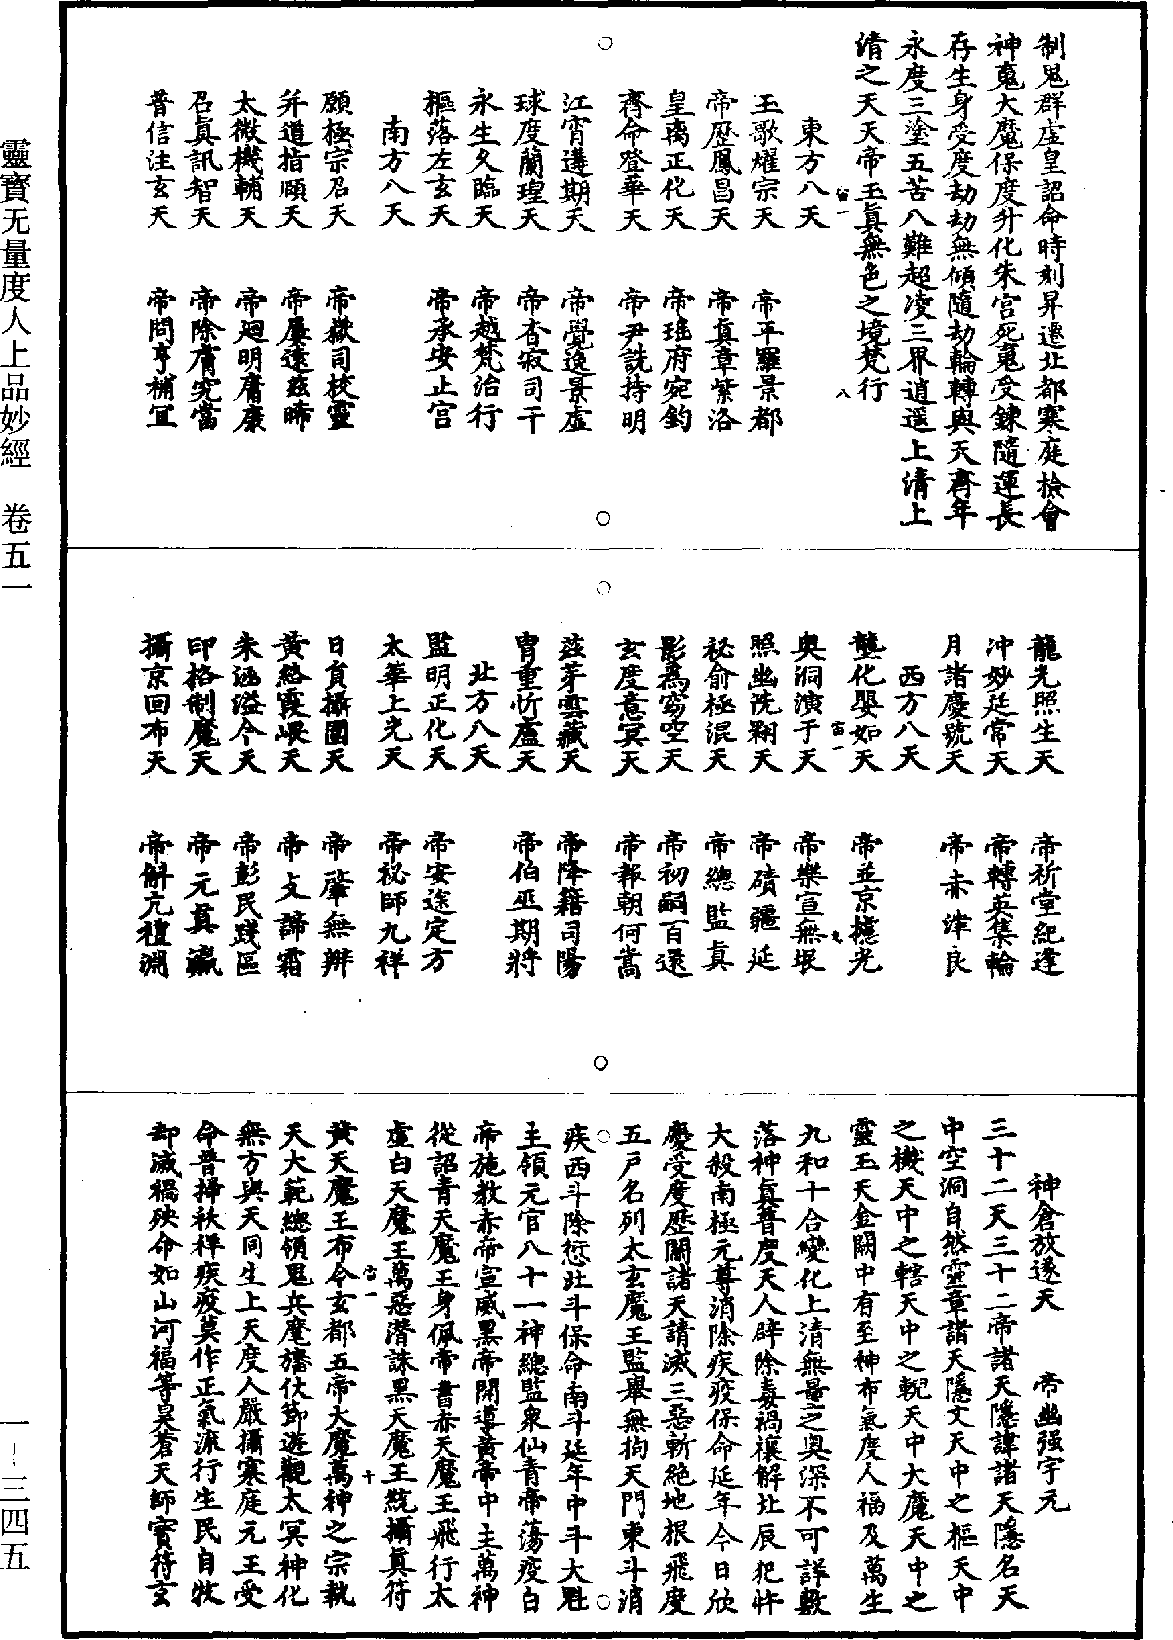 制鬼群虛皇詔命時刻昇遷北都寒庭檢會
神䰟大魔保度升化朱宮死䰟受鍊隨運長
存生身受度劫劫無傾隨劫輪轉與天齊年
永度三塗五苦八難超凌三界逍遥上清上
清之天天帝玉眞無色之境梵行
東方八天
玉歌燿宗天 帝平羅景都
帝歷鳳昌天 帝眞章紫洛
皇离正化天 帝瑤府宛鈞
齊命登華天 帝尹詵持明
江霄遷期天 帝覺逸景虛
球度蘭瑝天 帝杳寂司干
永生久臨天 帝越梵治行
樞落左玄天 帝承安止宮
南方八天
願極宗召天 帝嶽司校靈
幷道指頤天 帝屢遠玆晞
太微機輔天 帝廻明膺康
召眞訊智天 帝除膺究當
普信注玄天 帝問亨補冝
龍光照生天 帝祈堂紀逢
沖妙廷常天 帝轉英集輪
月諸慶號天 帝赤津良
西方八天
龔化嬰如天 帝並京㨿光
奥洞演于天 帝樂宣無垠
照幽洗翔天 帝磧疆延
祕俞極混天 帝總監眞
影爲窈空天 帝初嗣百還
玄度意冥天 帝報朝何嵩
玆芽雲藏天 帝降籍司陽
胄重忻盧天 帝伯巫期將
北方八天
監明正化天 帝安途定方
太華上光天 帝祕師九祥
日負攝圖天 帝肇無辨
黃絡霞嵎天 帝攴諦霜
朱涵溢今天 帝彭民踐區
印格制魔天 帝元眞瀛
攝京回布天 帝解亢禮淵
神倉放遂天 帝幽强宇元
三十二天三十二帝諸天隱諱諸天隱名天
中空洞自然靈章諸天隱文天中之樞天中
之機天中之轄天中之輗天中大魔天中之
靈玉天金闕中有至神布氣度人福及萬生
九和十合變化上清無量之奥深不可詳數
落神眞普度天人辟除毒禍穰解北辰犯忤
大殺南極元尊消除疾疫保命延年今日欣
慶受度歷關諸天請滅三惡斬絕地根飛度
五戶名列太玄魔王監舉無拘天門東斗消
疾西斗除愆北斗保命南斗延年中斗大魁
主領元官八十一神總監衆仙青帝蕩疫白
帝施教赤帝宣威黑帝開導黃帝中主萬神
從詔青天魔王身佩帝書赤天魔王飛行太
虛白天魔王萬惡潛誅黑天魔王統攝眞符
黃天魔王布令玄都五帝大魔萬神之宗執
天大範總領鬼兵麾旛仗節遊觀太冥神化
無方與天同生上天度人嚴攝寒庭元王受
命普掃袄祥疾疫莫作正氣流行生民自牧
却滅禍殃命如山河福等昊蒼天師寶符玄
靈寶无量度人上品妙經 卷五一
一—三四五